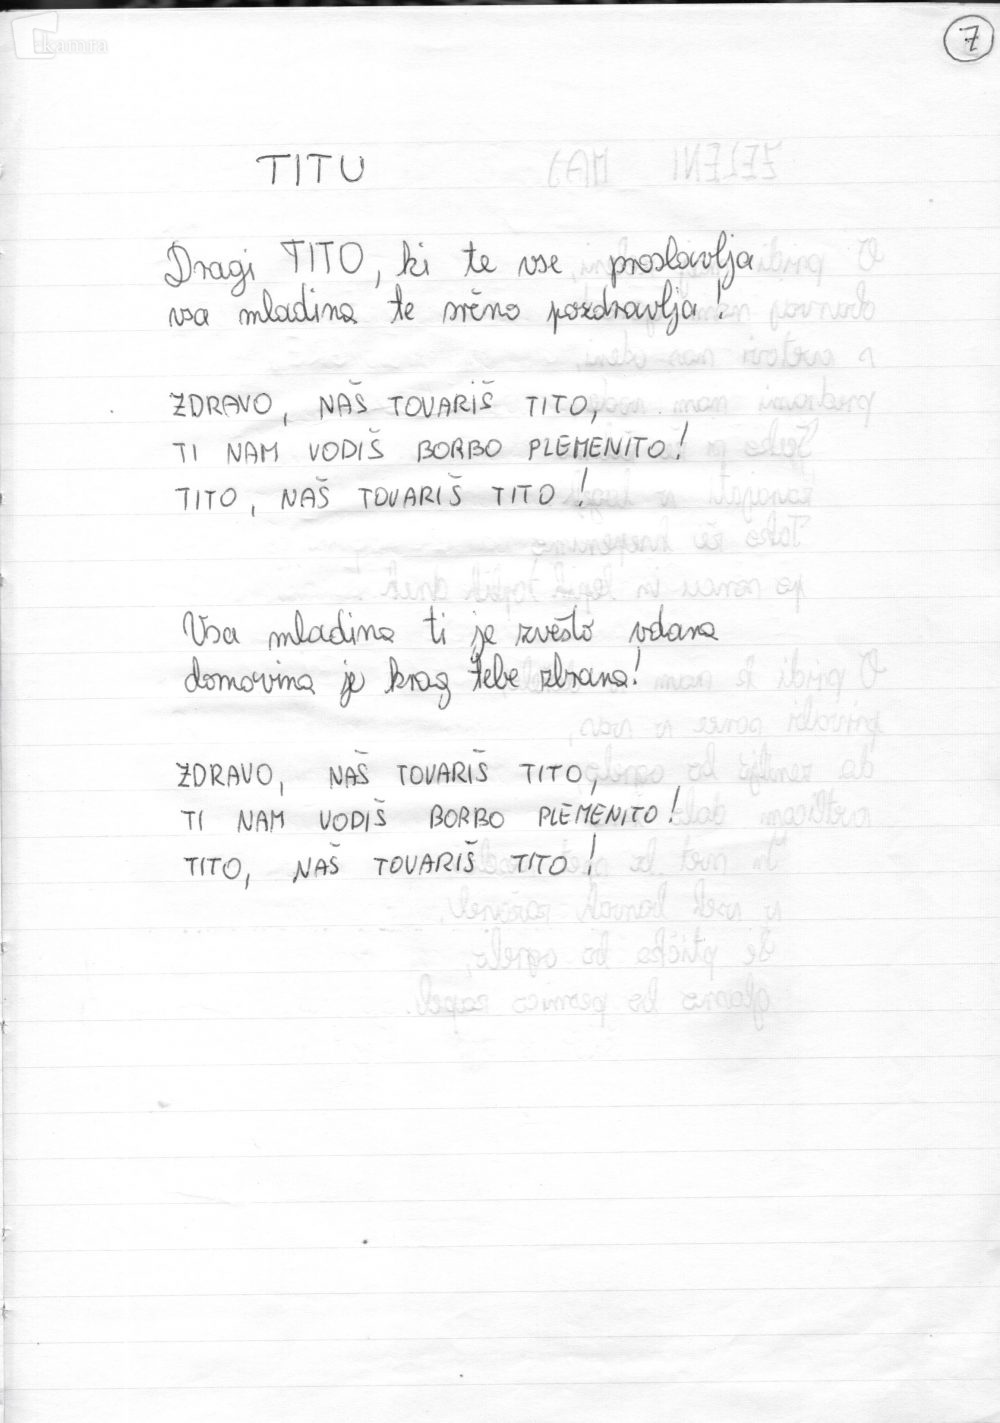 kamra
7
TITU
Dragi TITO, ki te vse proslavlja
vsa mladina te srčno pozdravlja!
ZDRAVO, NAŠ TOVARIŠ TITO,
TI NAM VODIŠ BORBO PLEMENITO!
TITO, NAŠ TOVARIŠ TITO!
Vsa mladina ti je zvesto vdana
domovina je krog tebe zbrana!
ZDRAVO, NAŠ TOVARIŠ TITO,
TI NAM VODIŠ BORBO PLEMENITO!
TITO, NAŠ TOVARIŠ TITO!